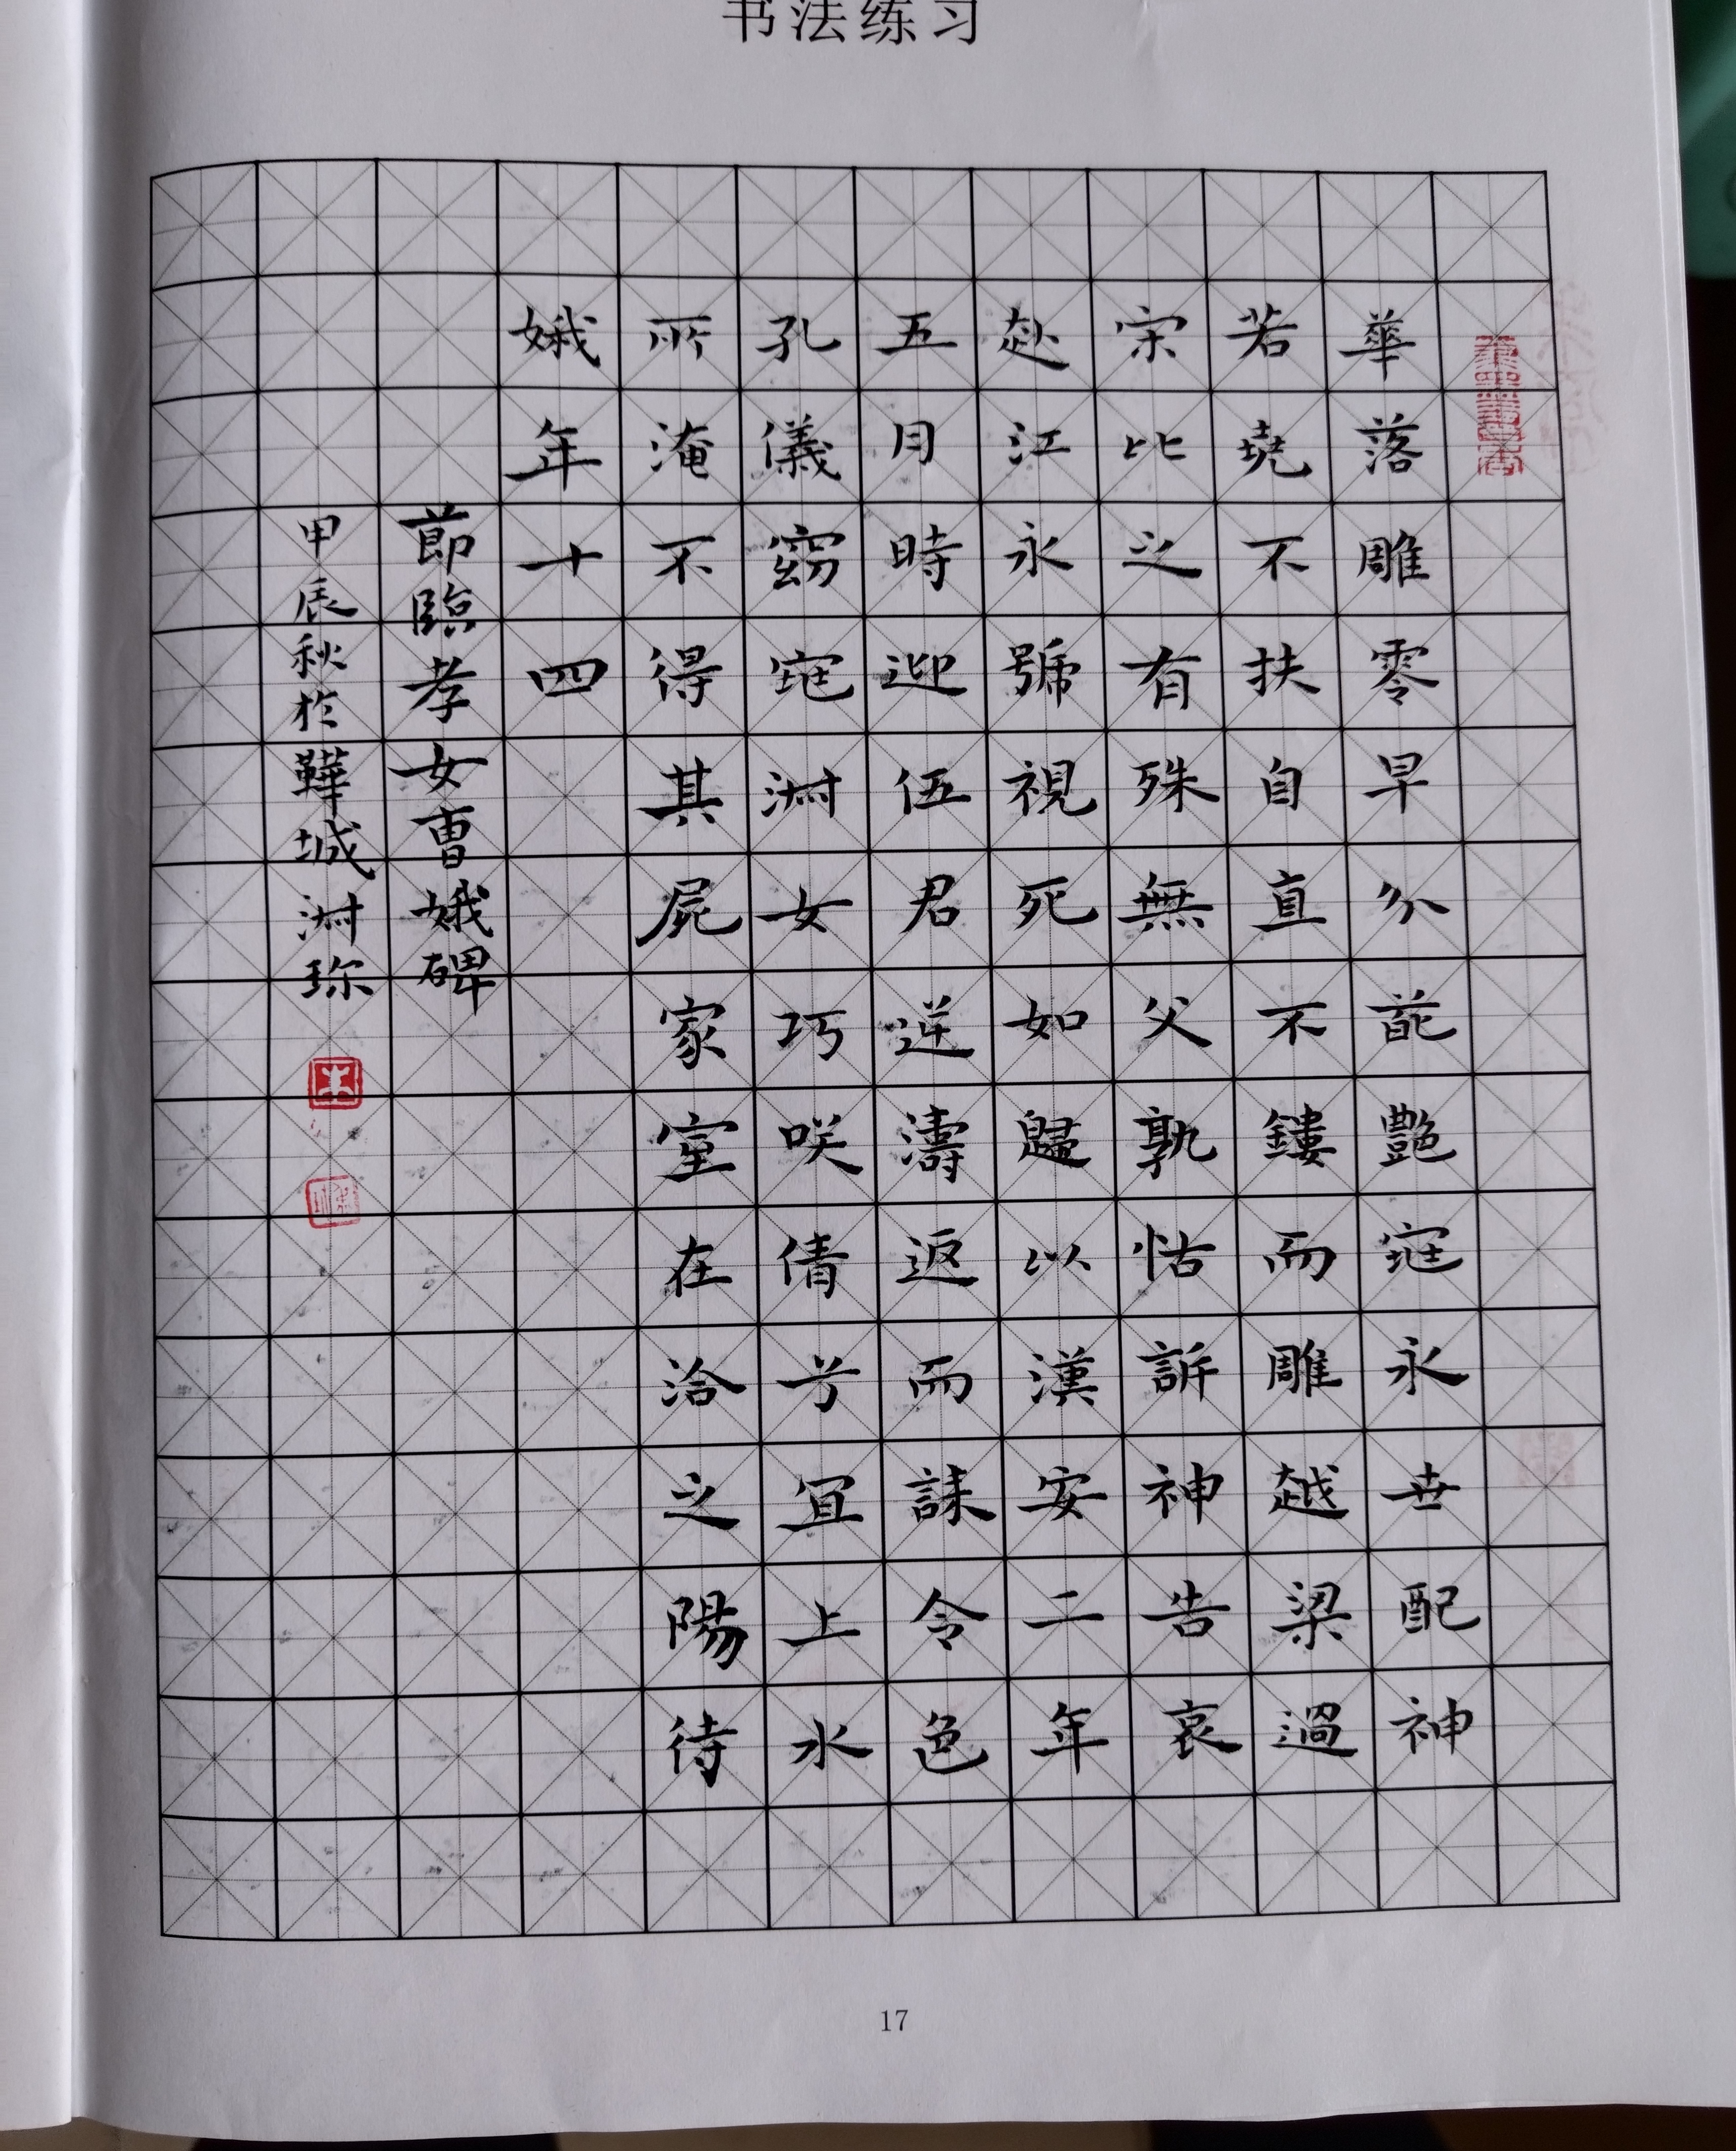 书法练习
華落雕零早分葩艷窕永世配神
若堯不扶自直不鏤而雕越梁過
宗比之有殊無父孰怙訴神告哀
赴江永號視死如歸以漢安二年
五月時迎伍君逆濤而上
孔儀窈窕淑女巧咲倩兮宜上水
所淹不得其屍家室在洽之陽待
娥年十四
節臨孝女曹娥碑
甲辰秋於韡城淑珎
17